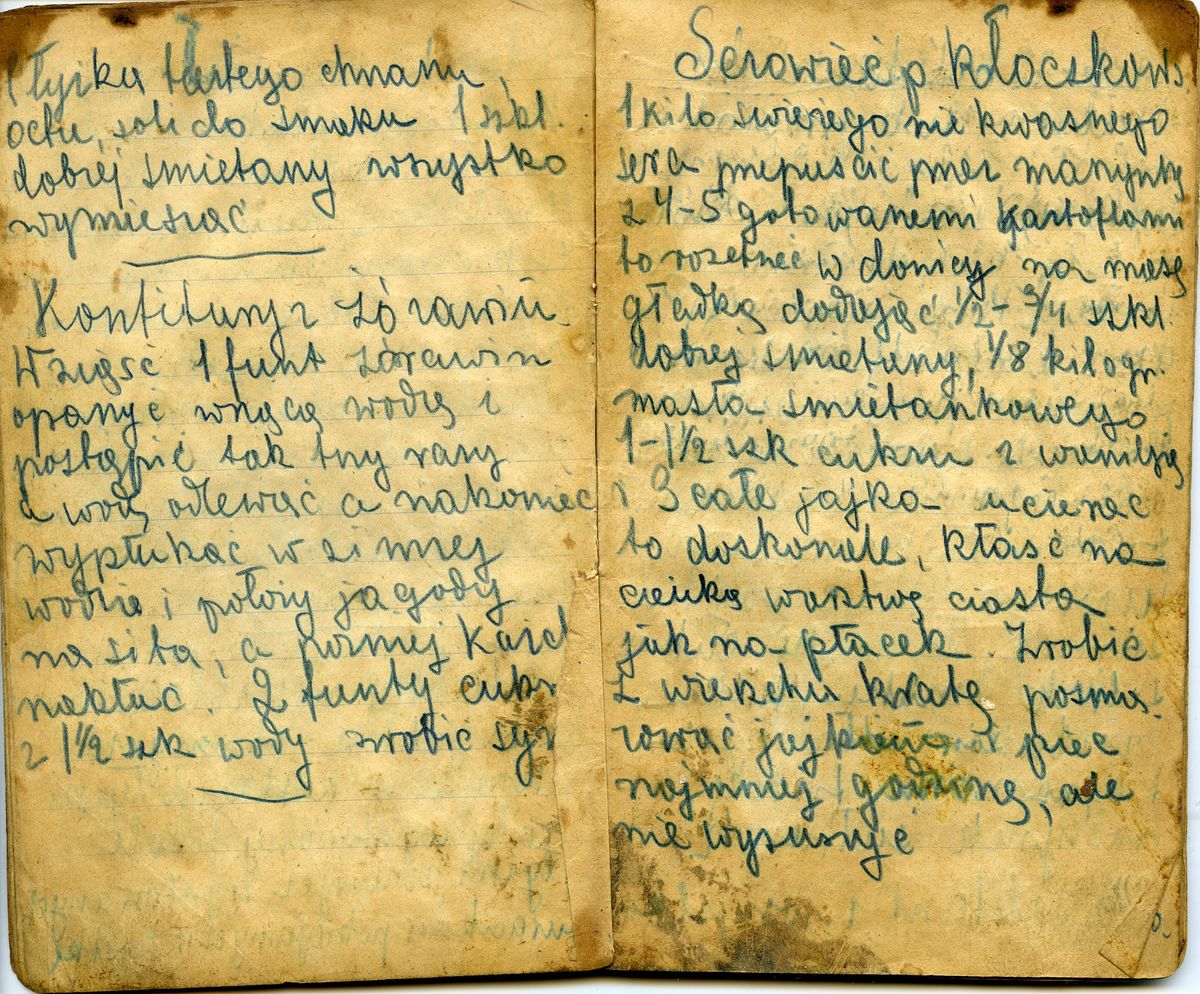 łyżka tartego chrzanu,
octu, soli do smaku 1 szkl.
dobrej śmietany wszystko
wymieszać
Konfitury z żórawin
Wziąść 1 funt żórawin
oparzyć wrzącą wodą i
postąpić tak trzy razy
a wodę odlewać a nakoniec
wypłukać w zimnej
wodzie i połorzy jagody
na sita, a pozniej Każd
nakłuc. 2 funty cukr
z 1 1/2 szk wody zrobić syr
Serowiec p Kłoczkows
1 kilo swierzego nie kwasnego
sera przepuścić przez maszynkę
z 4-5 gotowanemi kartoflami
to rozetrzeć w donicy na masę
gładką dodając 1/2 - 3/4 szkl.
dobrej smietany, 1/8 kilogr.
masła smietankowego
1-1 1/2 szk cukru z wanilją
i 3 całe jajka ucierac
to doskonale, kłaść na
cieńką warstwę ciasta
jak na płacek. Zrobić
z wierzchu kratę posma-
rować jajkiem piec
najmniej 1 godzinę, ale
nie wysuszyć